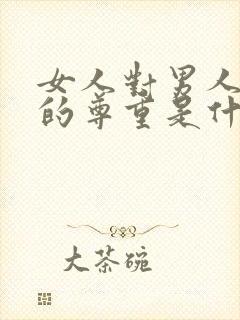 女人對男人
的尊重是什
大茶碗